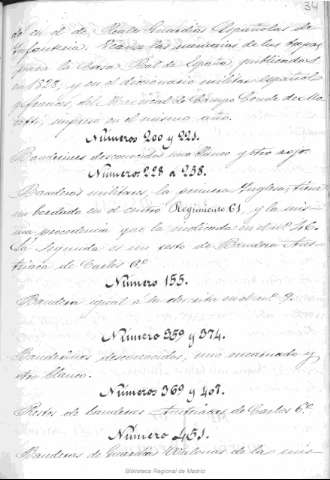 34
do en el de Reales Guardias Españolas de
Infantería. Véanse las memorias de los
para la Casa Real de España, publicadas
en 1828, y en el diccionario militar español
del Mariscal de Campo Conde de
impreso en el mismo año.
Números 200 y 221.
Banderines desconocidos uno blanco y otro rojo.
Números 228 a 258.
Banderas militares, la primera Inglesa, tiene
un bordado en el centro Regimiento 61, y la mis-
ma procedencia que la indicada en el nº
La segunda es un resto de Bandera Aus-
triaca de Carlos 6º
Número 155.
Bandera igual a la descrita en el nº 9.
Número 359 y 374.
Banderines desconocidos, uno encarnado y
otro blanco.
Números 369 y 407.
Restos de banderas Austriacas de Carlos 6º
Número 451.
Banderas de Guardias Walonas de la mis-
Biblioteca Regional de Madrid